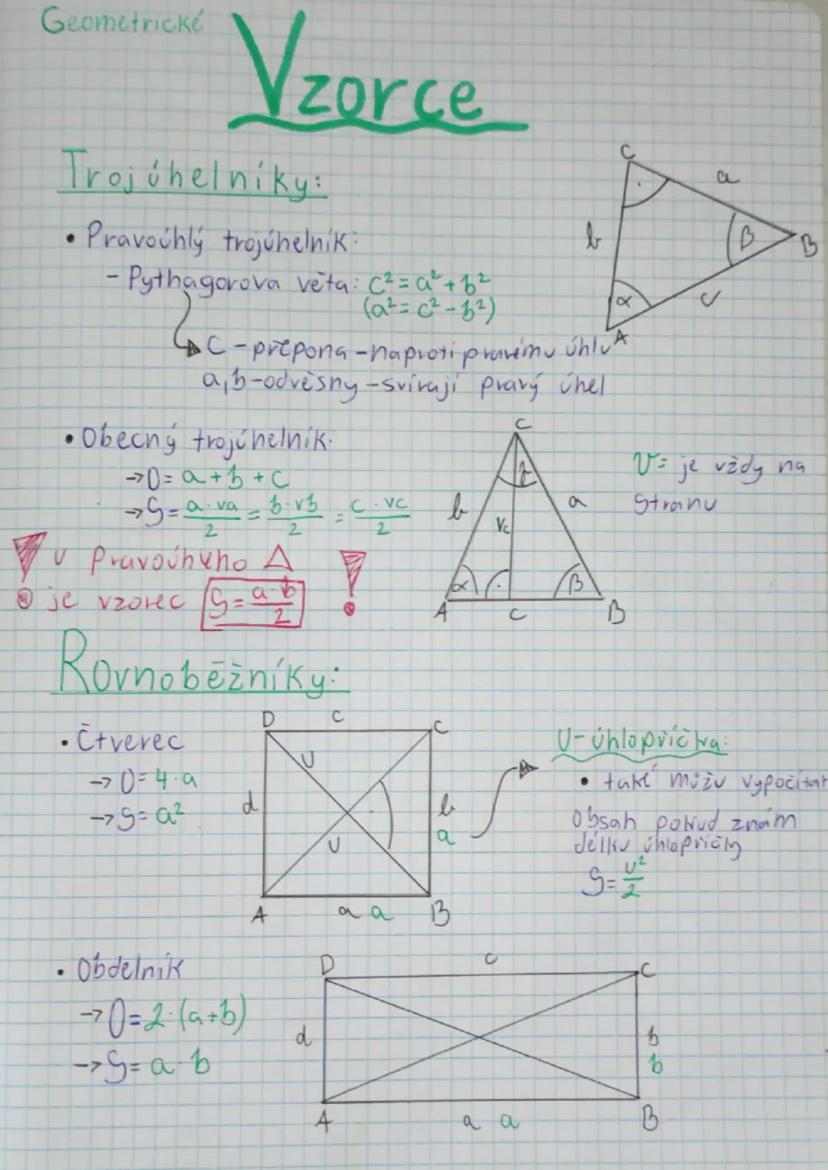 Geometrické
Vzorce
Trojúhelníky:
• Pravoúhlý trojúhelník:
- Pythagorova věta: c² = a² + b²
(a² = c² - b²)
C - přepona - naproti pravému úhlu
a, b - odvěsny - svírají pravý úhel
C
a
b
β
B
α
c
A
• Obecný trojúhelník:
→ O = a + b + c
→ S = a · va / 2 = b · vb / 2 = c · vc / 2
! U Pravoúhlého △ !
je vzorec S = a · b / 2
C
b
a
vc
α
β
A
c
B
V = je vždy na
stranu
Rovnoběžníky:
• Čtverec
→ O = 4 · a
→ S = a²
D
c
C
U
d
b
a
U
A
a a
B
U - úhlopříčka:
• také můžu vypočítat
obsah pokud znám
délku úhlopříčky
S = u² / 2
• Obdelník
→ O = 2 · (a + b)
→ S = a · b
D
c
C
d
b
b
A
a a
B